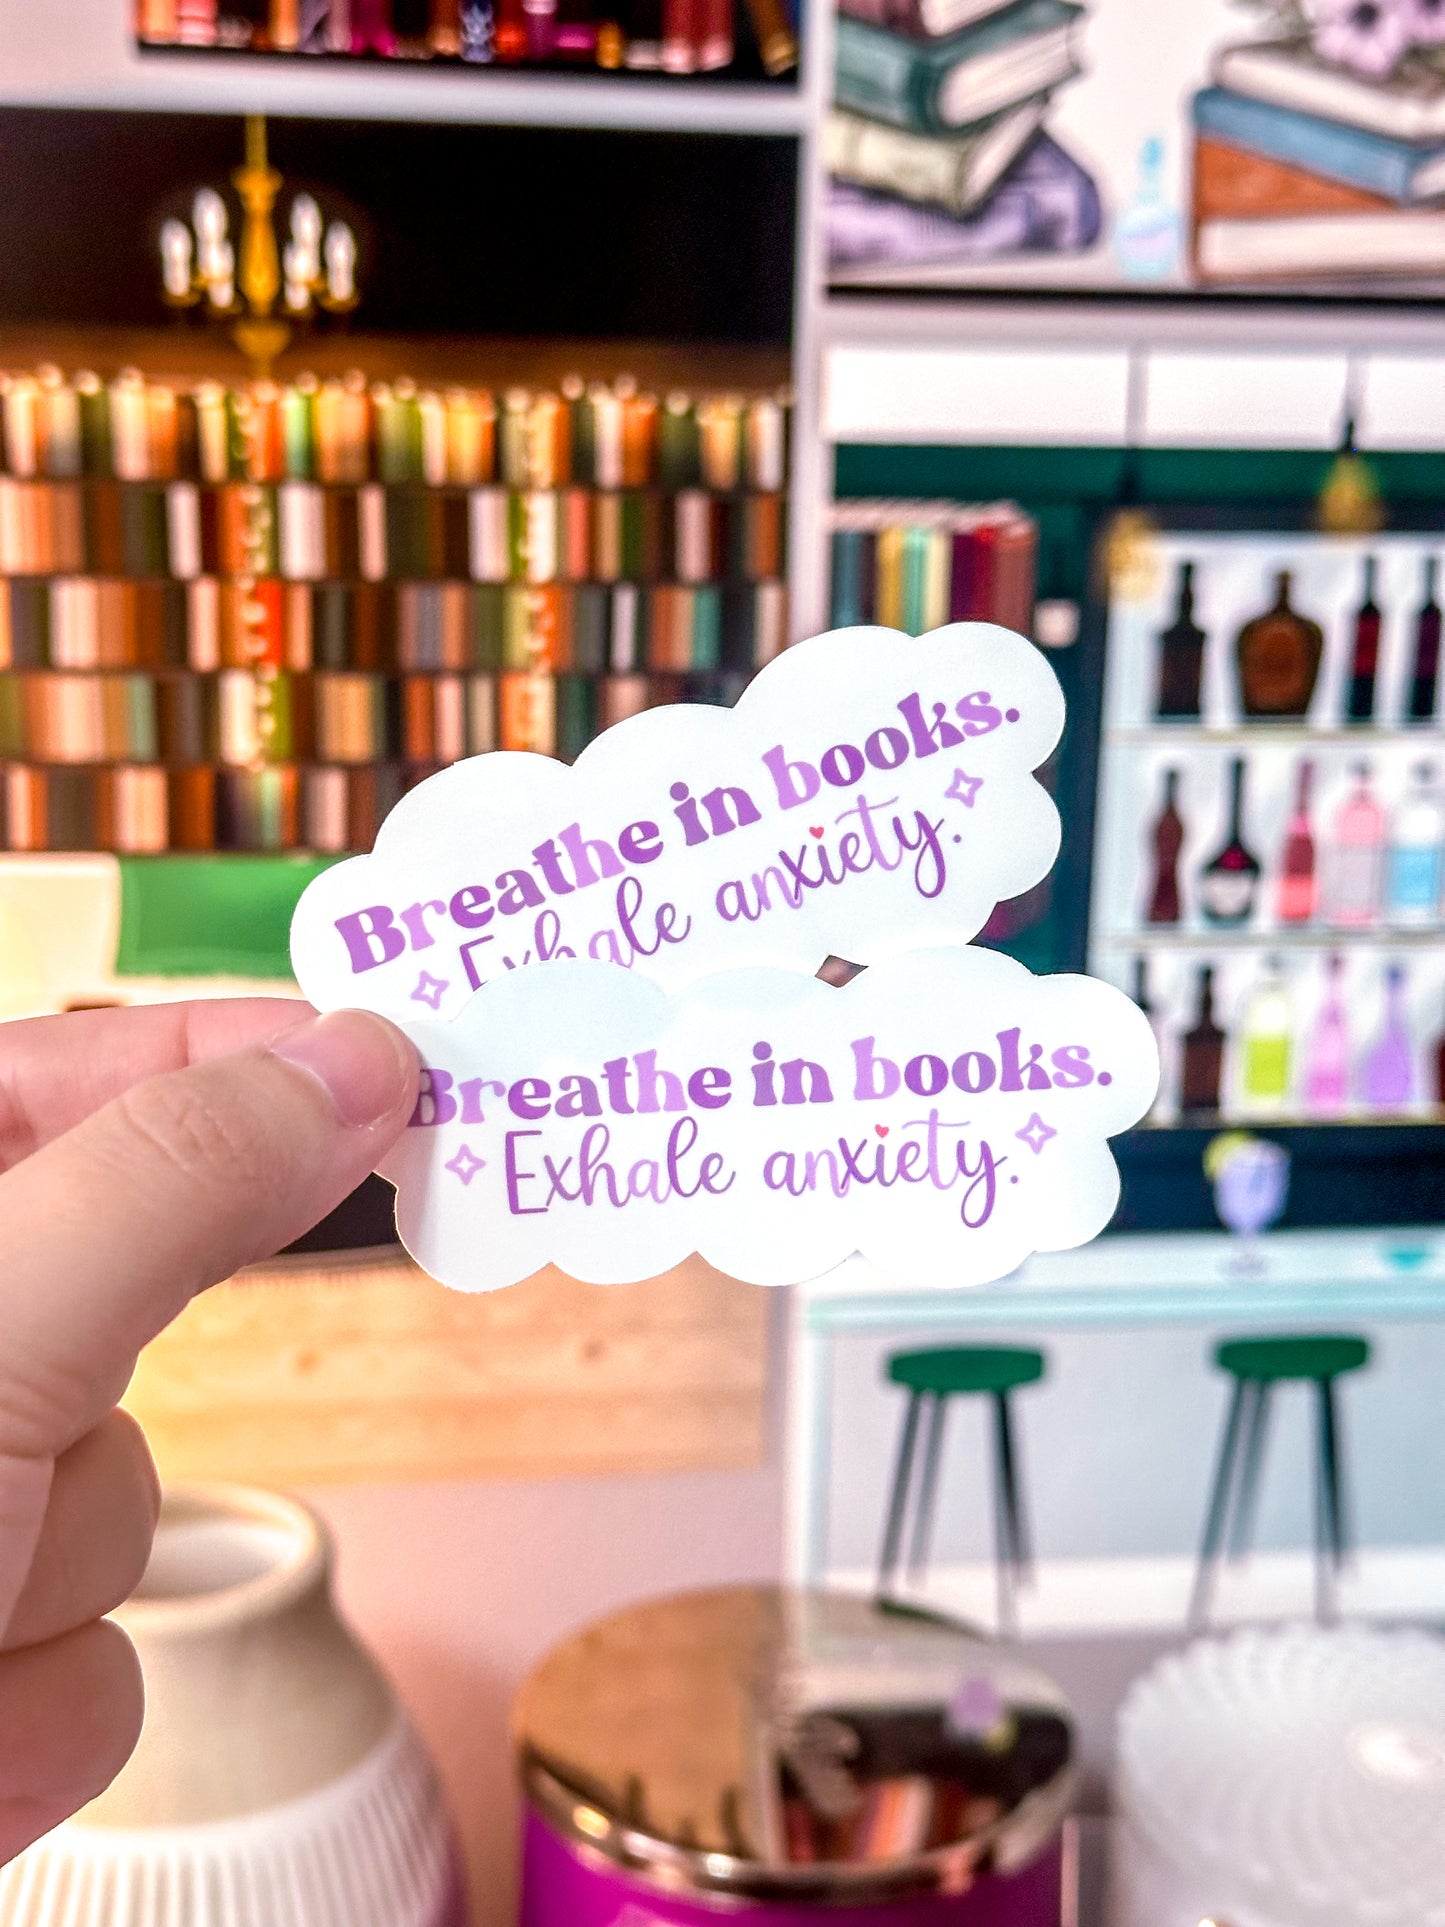 Breathe in books.
Exhale anxiety.
Breathe in books.
Exhale anxiety.